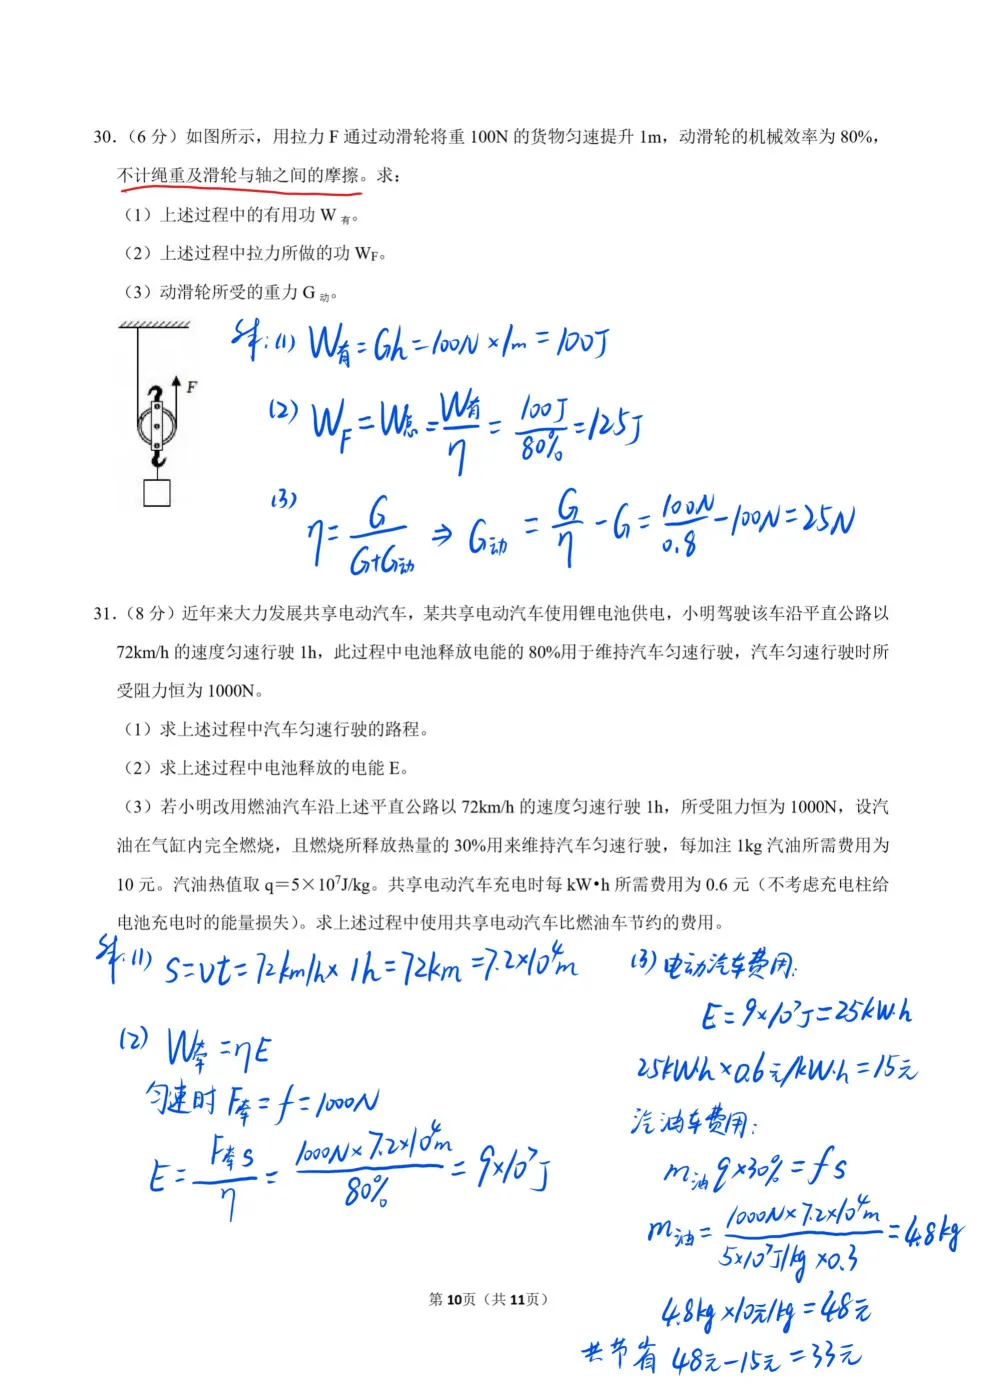 30.（6 分）如图所示，用拉力 F 通过动滑轮将重 100N 的货物匀速提升 1m，动滑轮的机械效率为 80%，
不计绳重及滑轮与轴之间的摩擦。求：
（1）上述过程中的有用功 W有。
（2）上述过程中拉力所做的功 WF。
（3）动滑轮所受的重力 G动。
F
解:(1) W有=Gh=100N×1m=100J
(2) WF=W总=W有/η=100J/80%=125J
(3) η=G/(G+G动) ⇒ G动=G/η-G=100N/0.8-100N=25N
31.（8 分）近年来大力发展共享电动汽车，某共享电动汽车使用锂电池供电，小明驾驶该车沿平直公路以
72km/h 的速度匀速行驶 1h，此过程中电池释放电能的 80%用于维持汽车匀速行驶，汽车匀速行驶时所
受阻力恒为 1000N。
（1）求上述过程中汽车匀速行驶的路程。
（2）求上述过程中电池释放的电能 E。
（3）若小明改用燃油汽车沿上述平直公路以 72km/h 的速度匀速行驶 1h，所受阻力恒为 1000N，设汽
油在气缸内完全燃烧，且燃烧所释放热量的 30%用来维持汽车匀速行驶，每加注 1kg 汽油所需费用为
10 元。汽油热值取 q＝5×10⁷J/kg。共享电动汽车充电时每 kW•h 所需费用为 0.6 元（不考虑充电柱给
电池充电时的能量损失）。求上述过程中使用共享电动汽车比燃油车节约的费用。
解:(1) S=vt=72km/h×1h=72km=7.2×10⁴m
(2) W牵=ηE
匀速时 F牵=f=1000N
E=F牵s/η=1000N×7.2×10⁴m/80%=9×10⁷J
(3) 电动汽车费用:
E=9×10⁷J=25kW·h
25kW·h×0.6元/kW·h=15元
汽油车费用:
m油q×30%=fs
m油=1000N×7.2×10⁴m/5×10⁷J/kg×0.3=4.8kg
4.8kg×10元/kg=48元
共节省 48元-15元=33元
第 10页（共 11页）